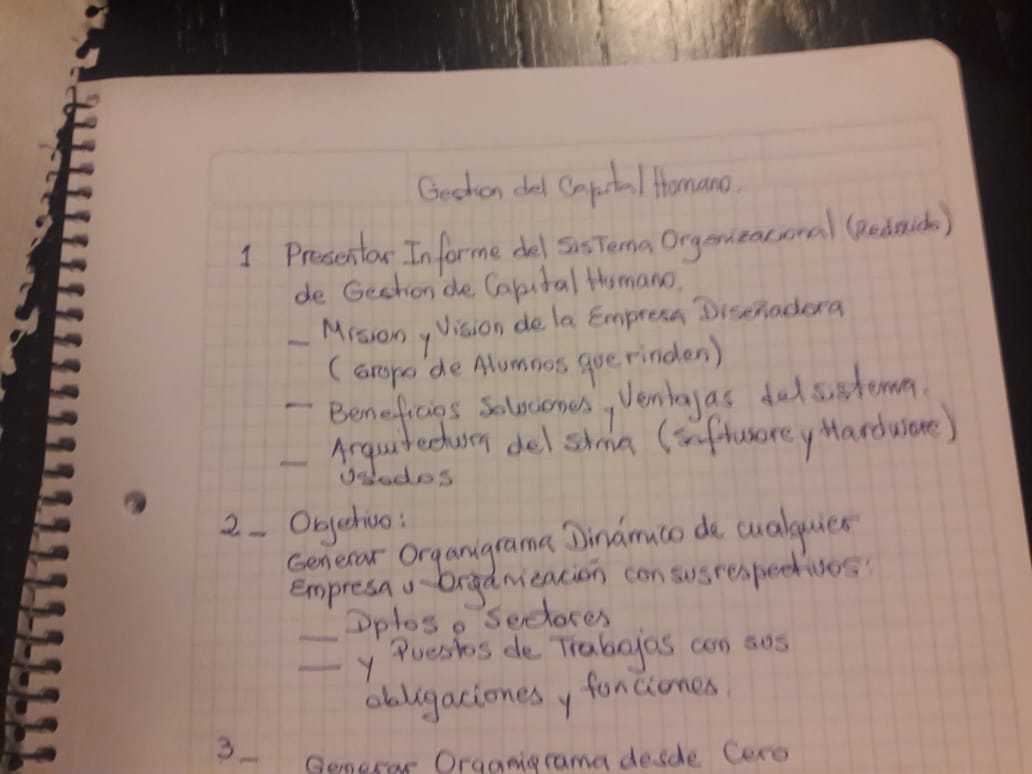 Gestion del Capital Humano.
1 Presentar Informe del Sistema Organizacional (Reducido)
de Gestion de Capital Humano.
— Mision y Vision de la Empresa Diseñadora
(Grupo de Alumnos que rinden)
— Beneficios Soluciones y Ventajas del sistema.
— Arquitectura del stma (Software y Hardware)
Usados
2 — Objetivo:
Generar Organigrama Dinámico de cualquier
Empresa u Organización con sus respectivos:
— Dptos o Sectores
— y Puestos de Trabajos con sus
obligaciones y funciones.
3 — Generar Organigrama desde Cero